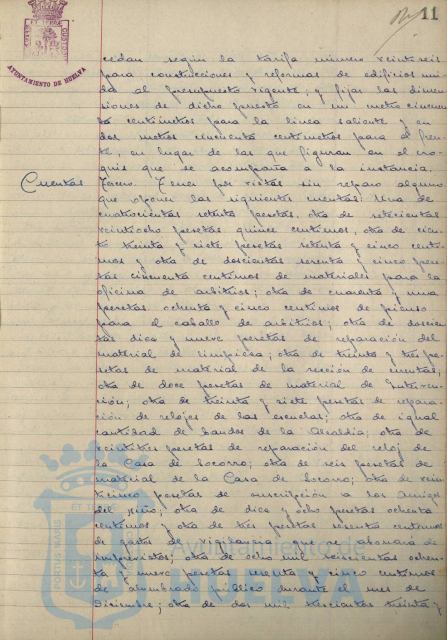 11
AYUNTAMIENTO DE HUELVA
cedan según la tarifa número veintiseis
para construcciones y reformas de edificios uni-
da al presupuesto vigente; y fijar las dimen-
siones de dicho puesto en un metro cincuen-
ta centímetros para la linea saliente y en
dos metros cincuenta centímetros para el fren-
te, en lugar de las que figuran en el cro-
quis que se acompaña a la instancia.
Cuentas
Tercero. Tener por vistas sin reparo alguno
que oponer las siguientes cuentas: Una de
cuatrocientas setenta pesetas, otra de setecientas
veintiocho pesetas quince centimos, otra de cien-
to treinta y siete pesetas setenta y cinco centi-
mos y otra de doscientas sesenta y cinco pese-
tas cincuenta centimos de materiales para la
oficina de arbitrios; otra de cuarenta y una
pesetas ochenta y cinco centimos de pienso
para el caballo de arbitrios; otra de doscien-
tas diez y nueve pesetas de reparación del
material de limpieza; otra de treinta y tres pe-
setas de material de la sección de cuentas;
otra de doce pesetas de material de Interven-
ción; otra de treinta y siete pesetas de repara-
ción de relojes de las escuelas; otra de igual
cantidad de bandos de la Alcaldia; otra de
veintitres pesetas de reparación del reloj de
la Casa de Socorro; otra de seis pesetas de
material de la Casa de Socorro; otra de vein-
ticinco pesetas de suscripción a los Amigos
del niño; otra de diez y ocho pesetas ochenta
centimos y otra de tres pesetas sesenta centimos
de gastos de vigilancia que se abonará de
imprevistos; otra de ocho mil seiscientas ochen-
ta y nueve pesetas sesenta y cinco centimos
de alumbrado público durante el mes de
Diciembre; otra de dos mil trescientas treinta y
Ayuntamiento de
HUELVA
PORTUS MARIS ET TERRAE CUSTODIA